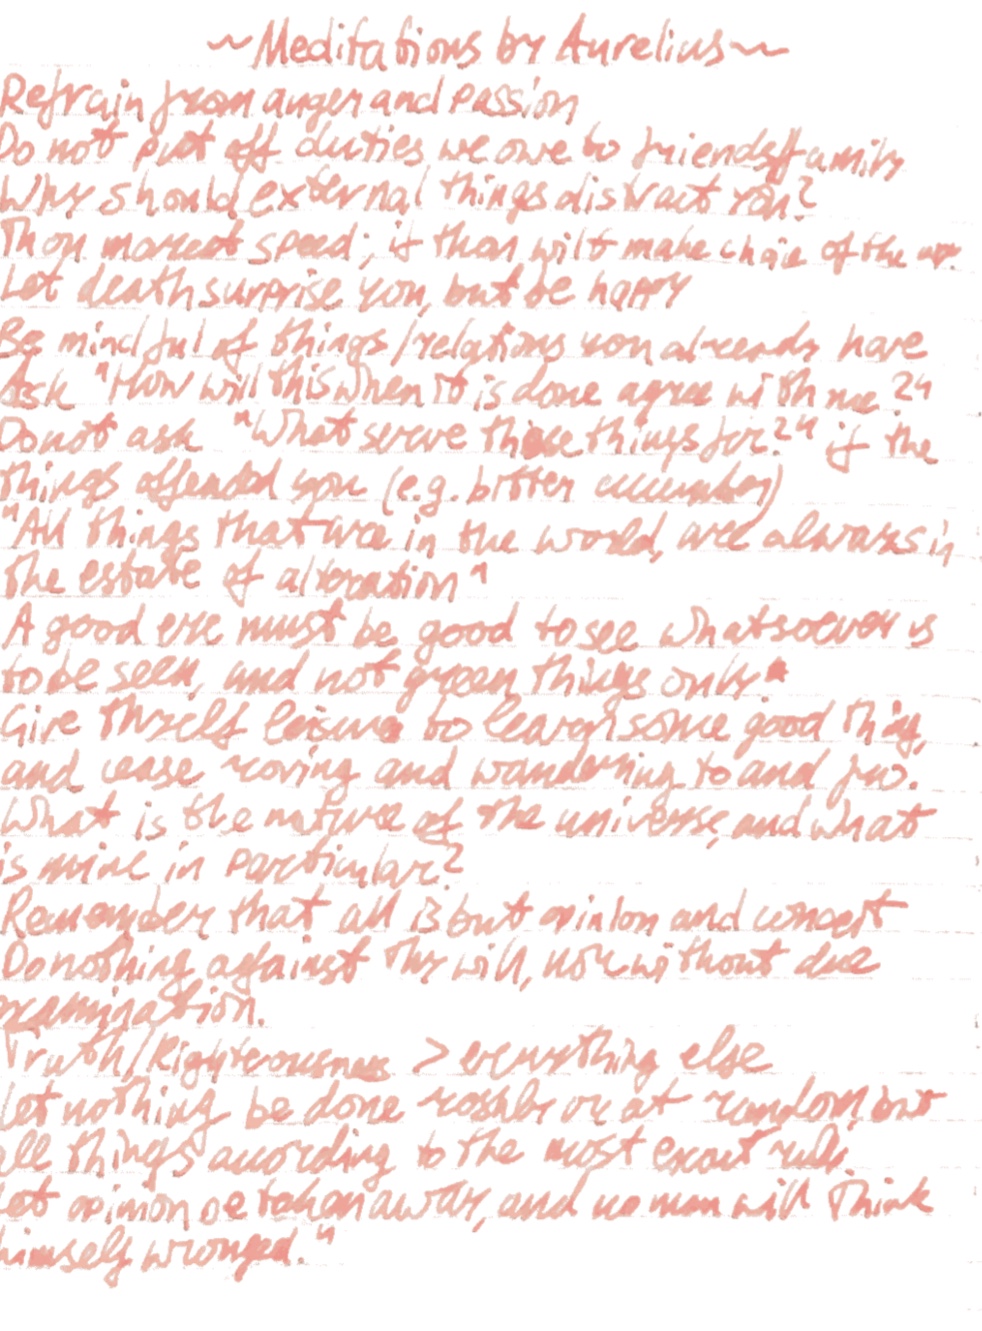 ~Meditations by Aurelius~
Refrain from anger and passion
Do not put off duties we owe to friends/family
Why should external things distract you?
Thou mayest speed; if thou wilt make choice of the
Let death surprise you, but be happy
Be mindful of things/relations you already have
Ask "How will this when it is done agree with me?"
Do not ask "What serve these things for?" if the
things offended you (e.g. bitter cucumber)
"All things that are in the world, are always in
the estate of alteration"
A good eye must be good to see whatsoever is
to be seen, and not green things only
Give thyself leisure to learn some good thing,
and cease roving and wandering to and fro.
What is the nature of the universe, and what
is mine in particular?
Remember that all is but opinion and conceit
Do nothing against thy will, nor without due
examination.
Truth/Righteousness > everything else
Let nothing be done rashly or at random, but
all things according to the most exact rule.
Let opinion be taken away, and no man will think
himself wronged."